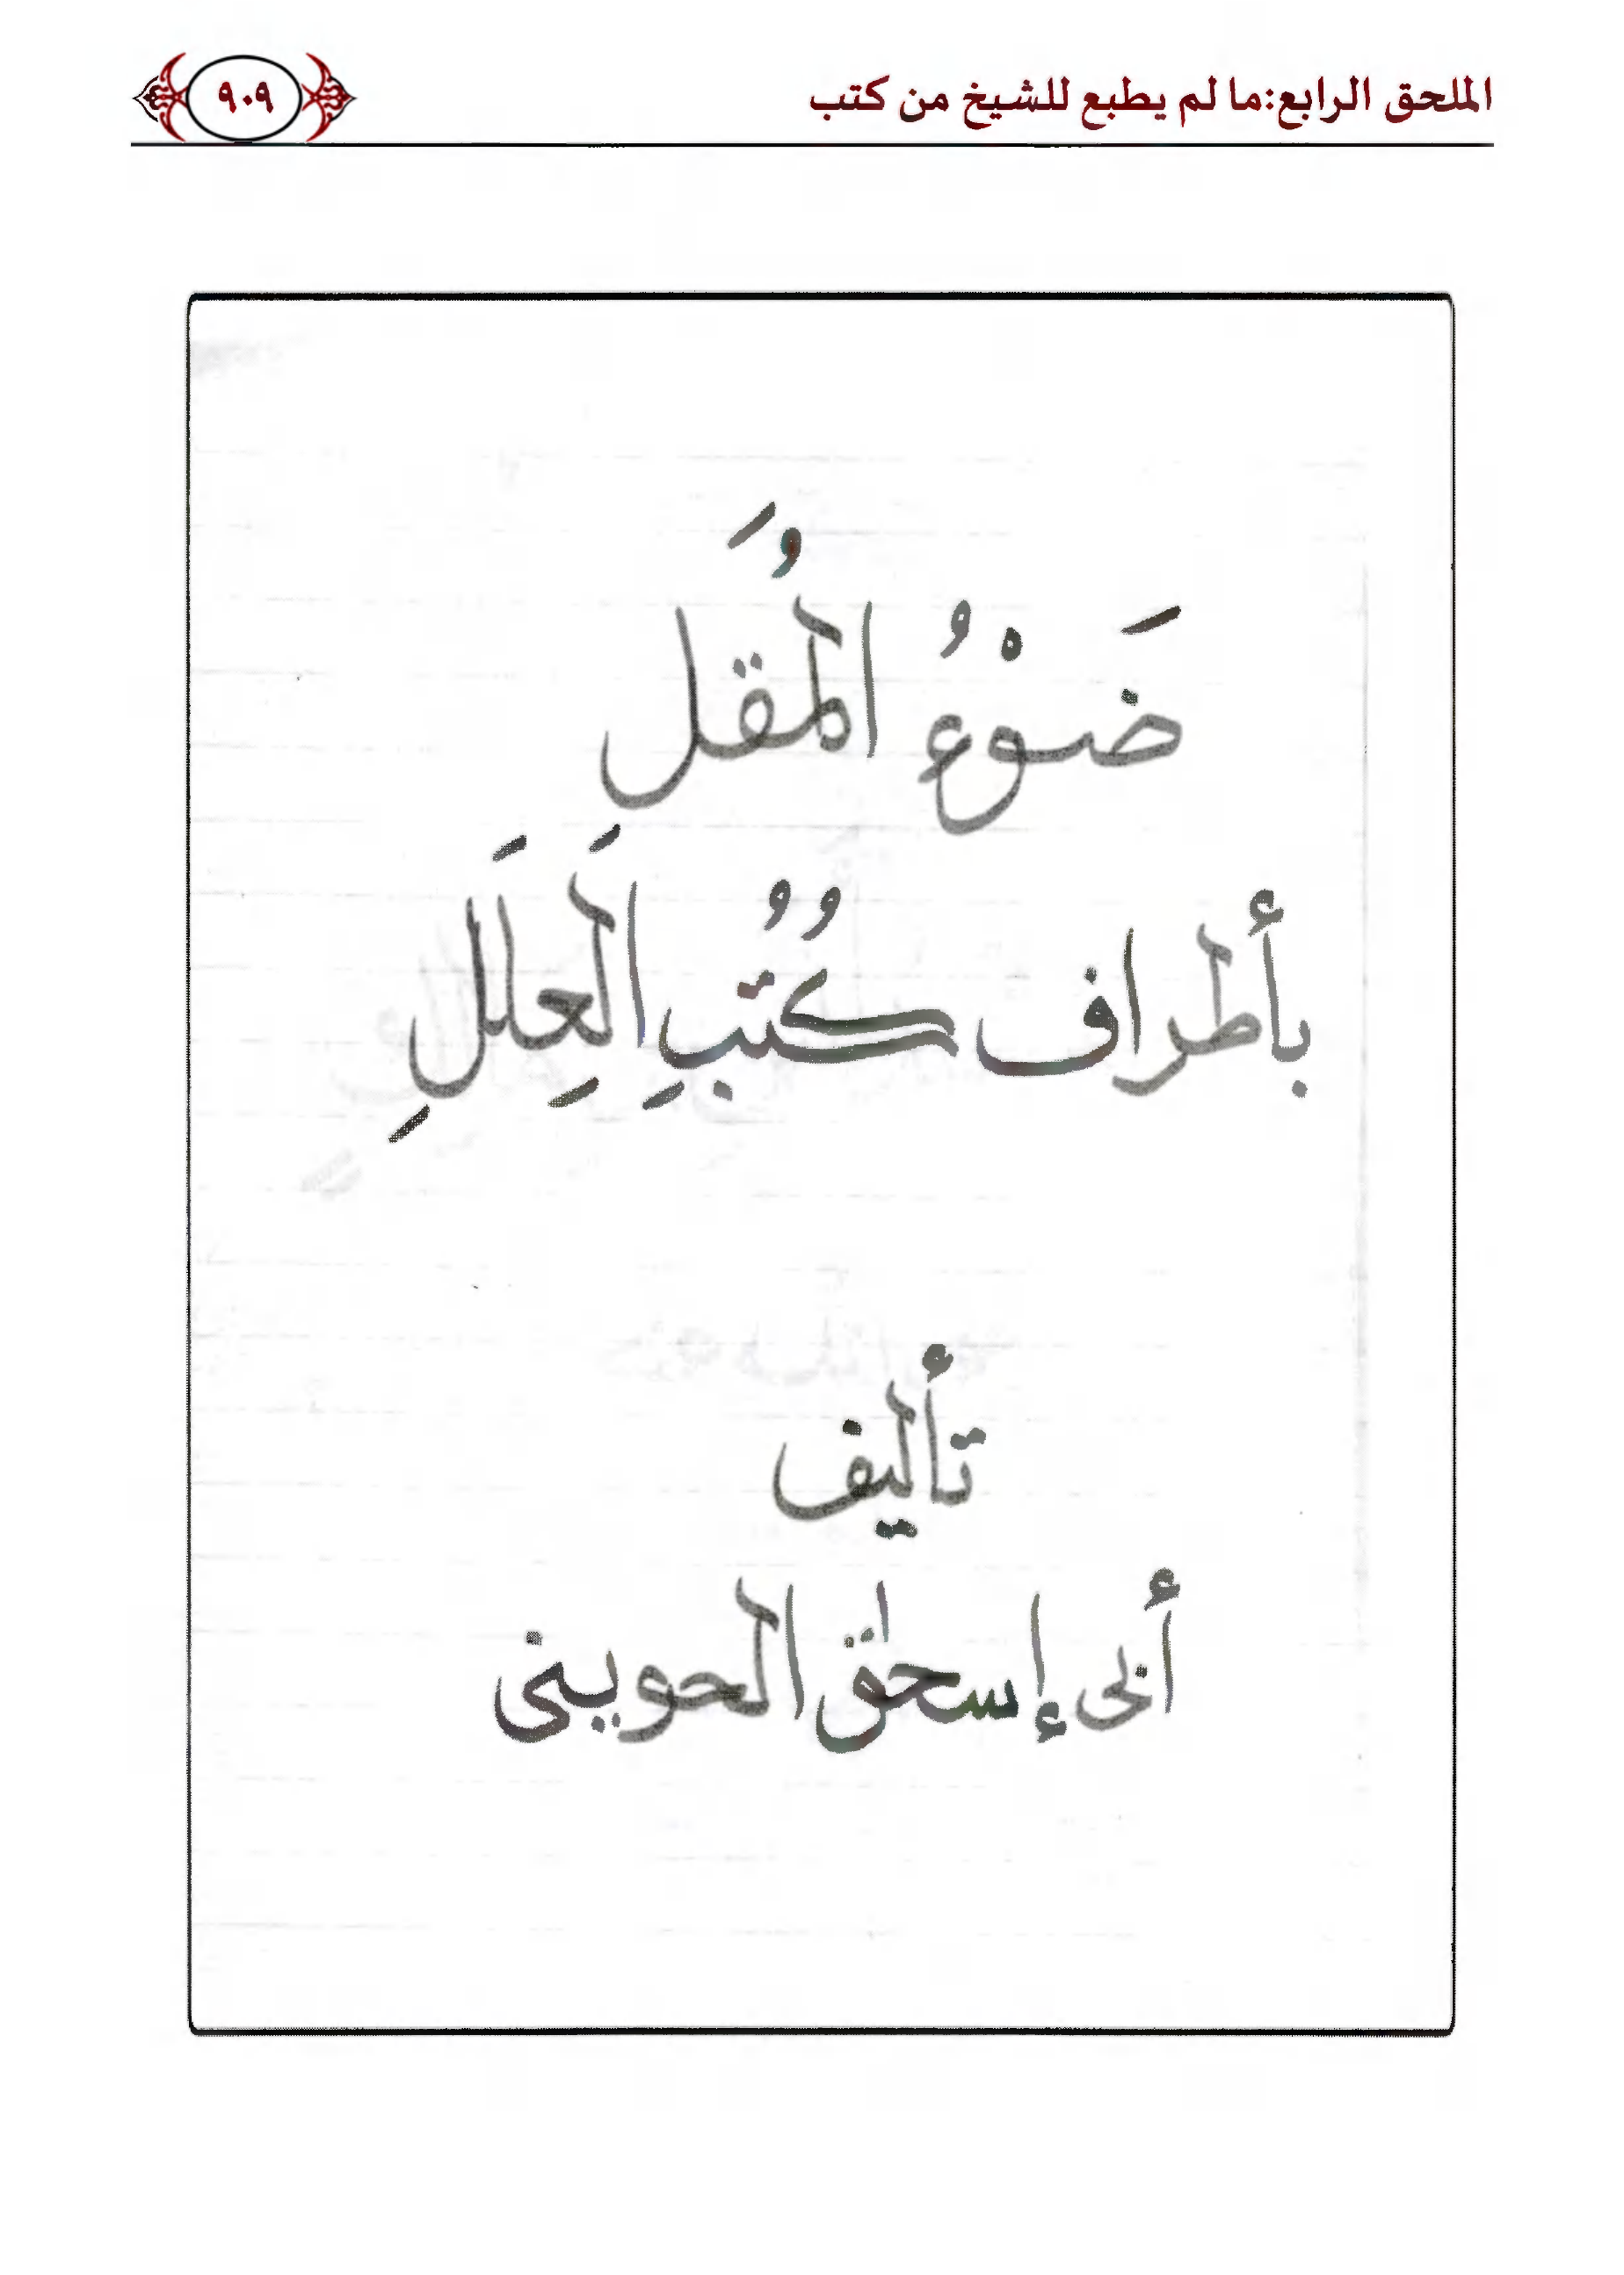 الملحق الرابع:ما لم يطبع للشيخ من كتب
٩٠٩
ضَوْءُ المُقَل
بأطراف كُتُبِ العِلَلِ
تأليف
أبى إسحق الحوينى